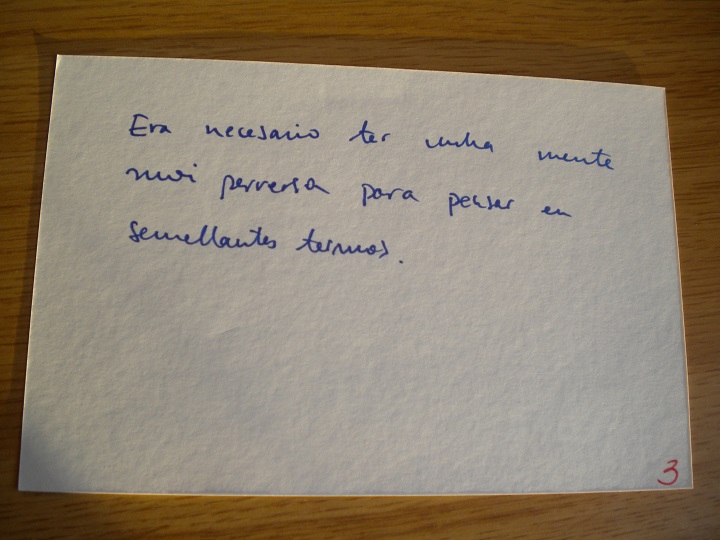 Era necesario ter unha mente
moi perversa para pensar en
semellantes termos.
3